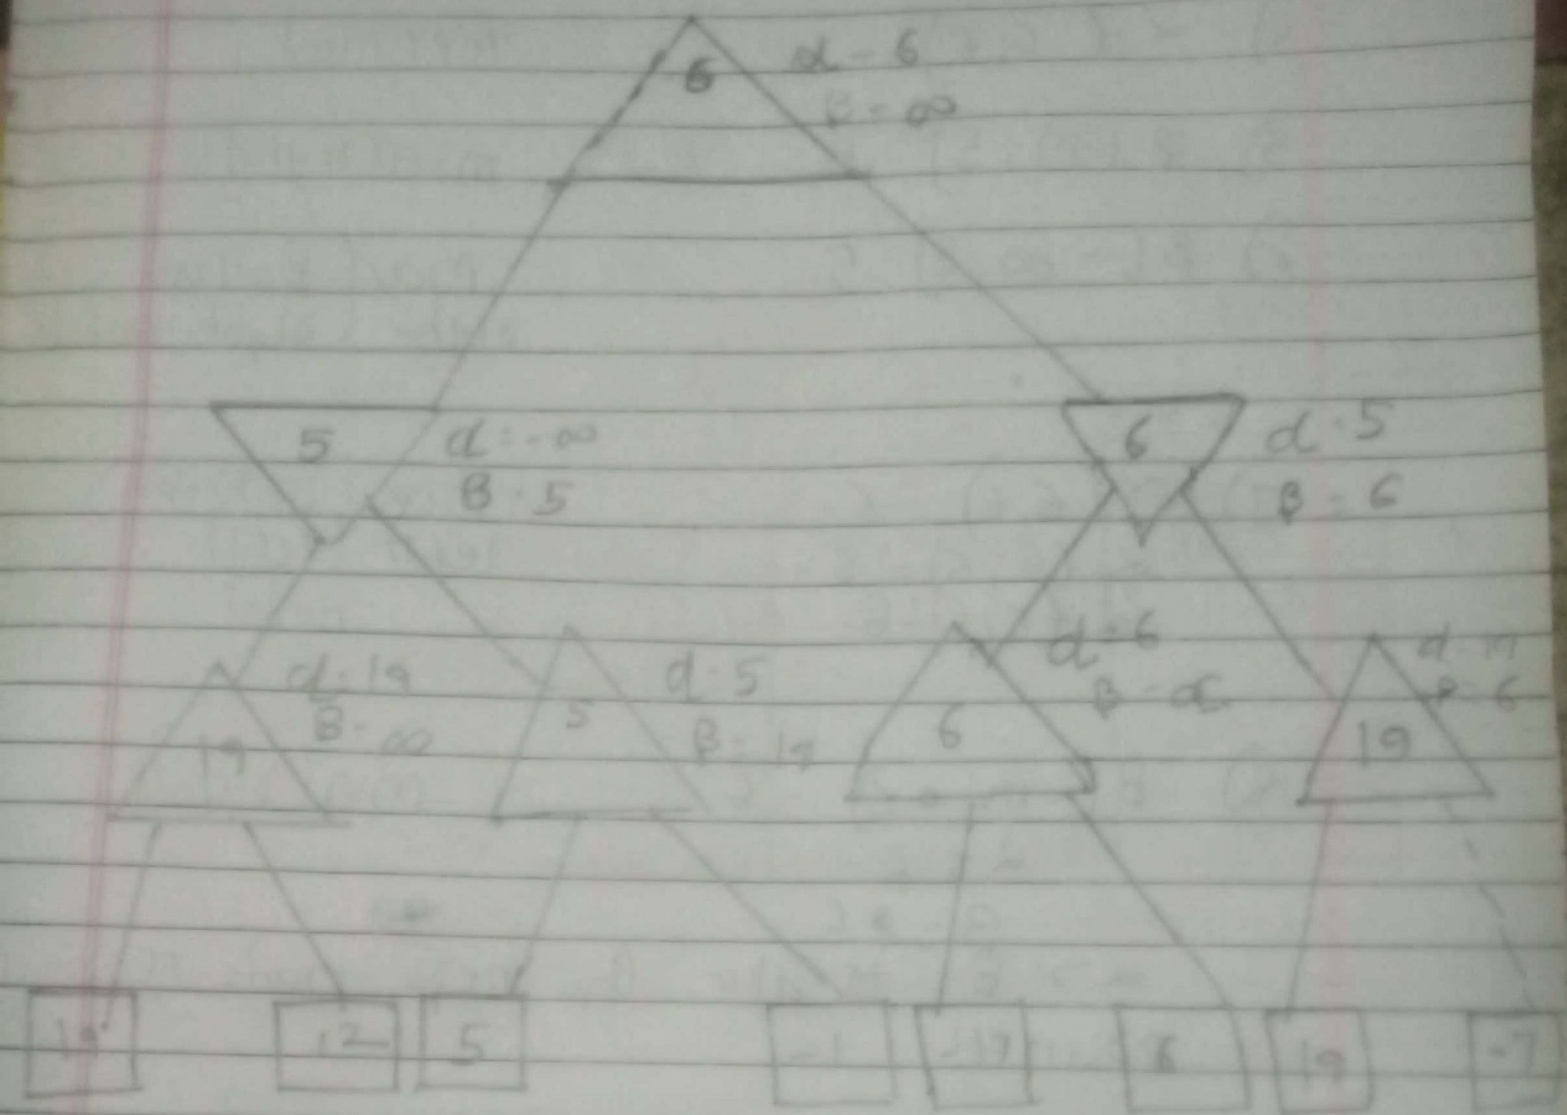 6 α - 6
β = ∞
5 α = -∞
β = 5
6 α = 5
β = 6
19 α = 19
β = ∞
5 α = 5
β = 19
6 α = 6
β = α
19
β = 6
12 5 -1 -17 6 19 -7